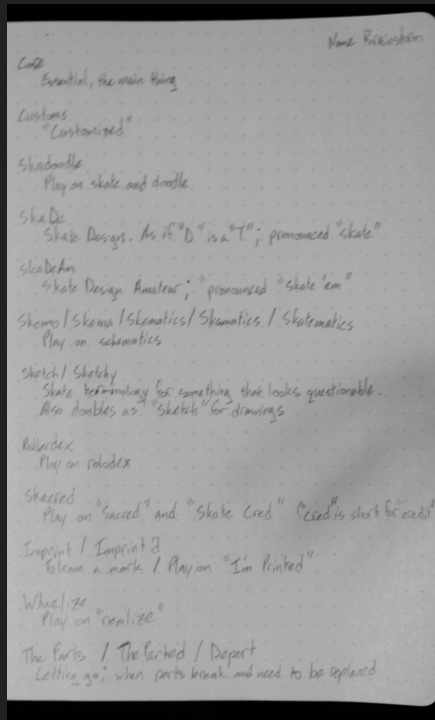 Name Brainstorm
Core
Essential, the main thing
Customs
"Customized"
Skadoodle
Play on skate and doodle
SkaDe
Skate Design. As if "D" is a "T"; pronounced "skate"
SkaDeAm
Skate Design Amateur; "pronounced "skate 'em"
Skemo / Skema / Skematics / Skamatics / Skatematics
Play on schematics
Sketch / Sketchy
Skate terminology for something that looks questionable.
Also doubles as "sketch" for drawings
Rollerdex
Play on rolodex
Skacred
Play on "Sacred" and "Skate Cred" "cred" is short for "credit"
Imprint / Imprint'd
To leave a mark / Play on "I'm Printed"
Wheelize
Play on "realize"
The Parts / The Parted / Depart
Letting go; when parts break and need to be replaced